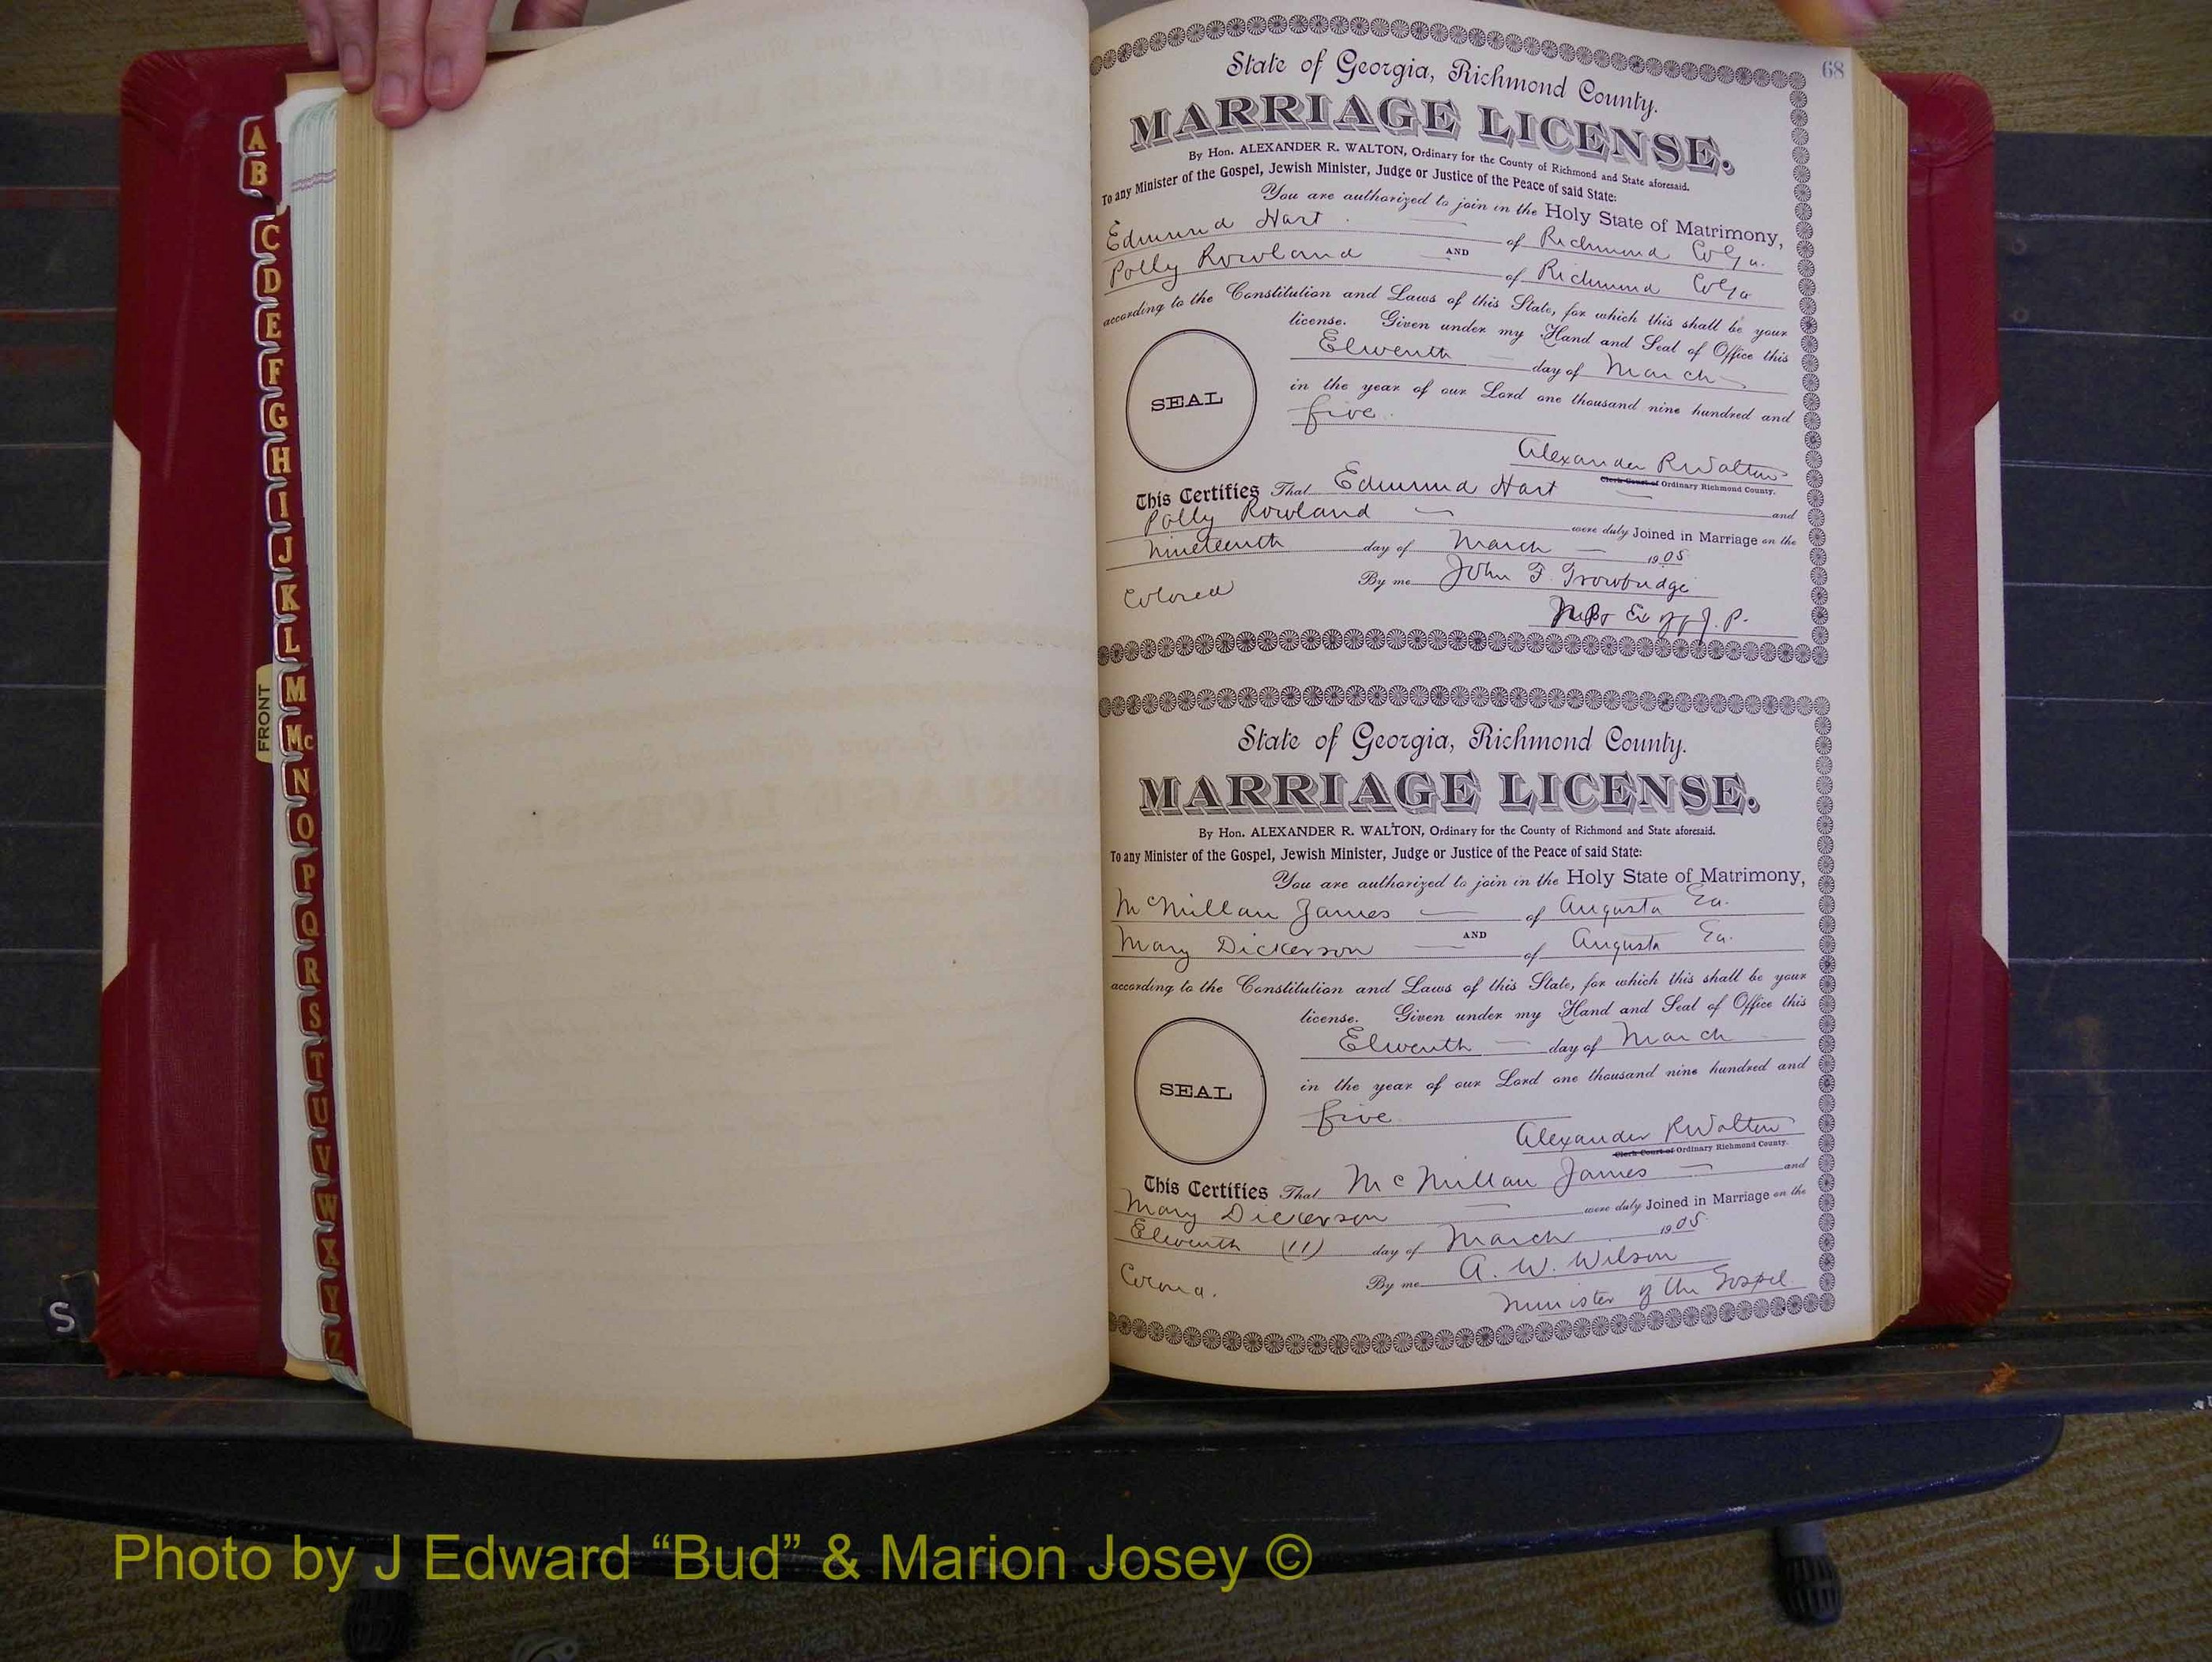 A
B
C
D
E
F
G
H
I
J
K
L
M
Mc
N
O
P
Q
R
S
T
U
V
W
X
Y
Z
FRONT
S
68
State of Georgia, Richmond County.
MARRIAGE LICENSE.
By Hon. ALEXANDER R. WALTON, Ordinary for the County of Richmond and State aforesaid.
To any Minister of the Gospel, Jewish Minister, Judge or Justice of the Peace of said State:
You are authorized to join in the Holy State of Matrimony,
Edmund Hart of Richmond Co Ga.
AND
Polly Rowland of Richmond Co Ga
according to the Constitution and Laws of this State, for which this shall be your
license. Given under my Hand and Seal of Office this
Eleventh day of March
in the year of our Lord one thousand nine hundred and
SEAL
five
Alexander R Walton
Clerk Court of Ordinary Richmond County.
This Certifies That Edmund Hart and
Polly Rowland were duly Joined in Marriage on the
Nineteenth day of March 1905
Colored By me John F. Trowbridge
J. P.
State of Georgia, Richmond County.
MARRIAGE LICENSE.
By Hon. ALEXANDER R. WALTON, Ordinary for the County of Richmond and State aforesaid.
To any Minister of the Gospel, Jewish Minister, Judge or Justice of the Peace of said State:
You are authorized to join in the Holy State of Matrimony,
McMillan James of Augusta Ga.
AND
Mary Dickerson of Augusta Ga.
according to the Constitution and Laws of this State, for which this shall be your
license. Given under my Hand and Seal of Office this
Eleventh day of March
in the year of our Lord one thousand nine hundred and
SEAL
five
Alexander R Walton
Clerk Court of Ordinary Richmond County.
This Certifies That McMillan James and
Mary Dickerson were duly Joined in Marriage on the
Eleventh (11) day of March 1905
By me A. W. Wilson
Minister of the Gospel
Photo by J Edward “Bud” & Marion Josey ©